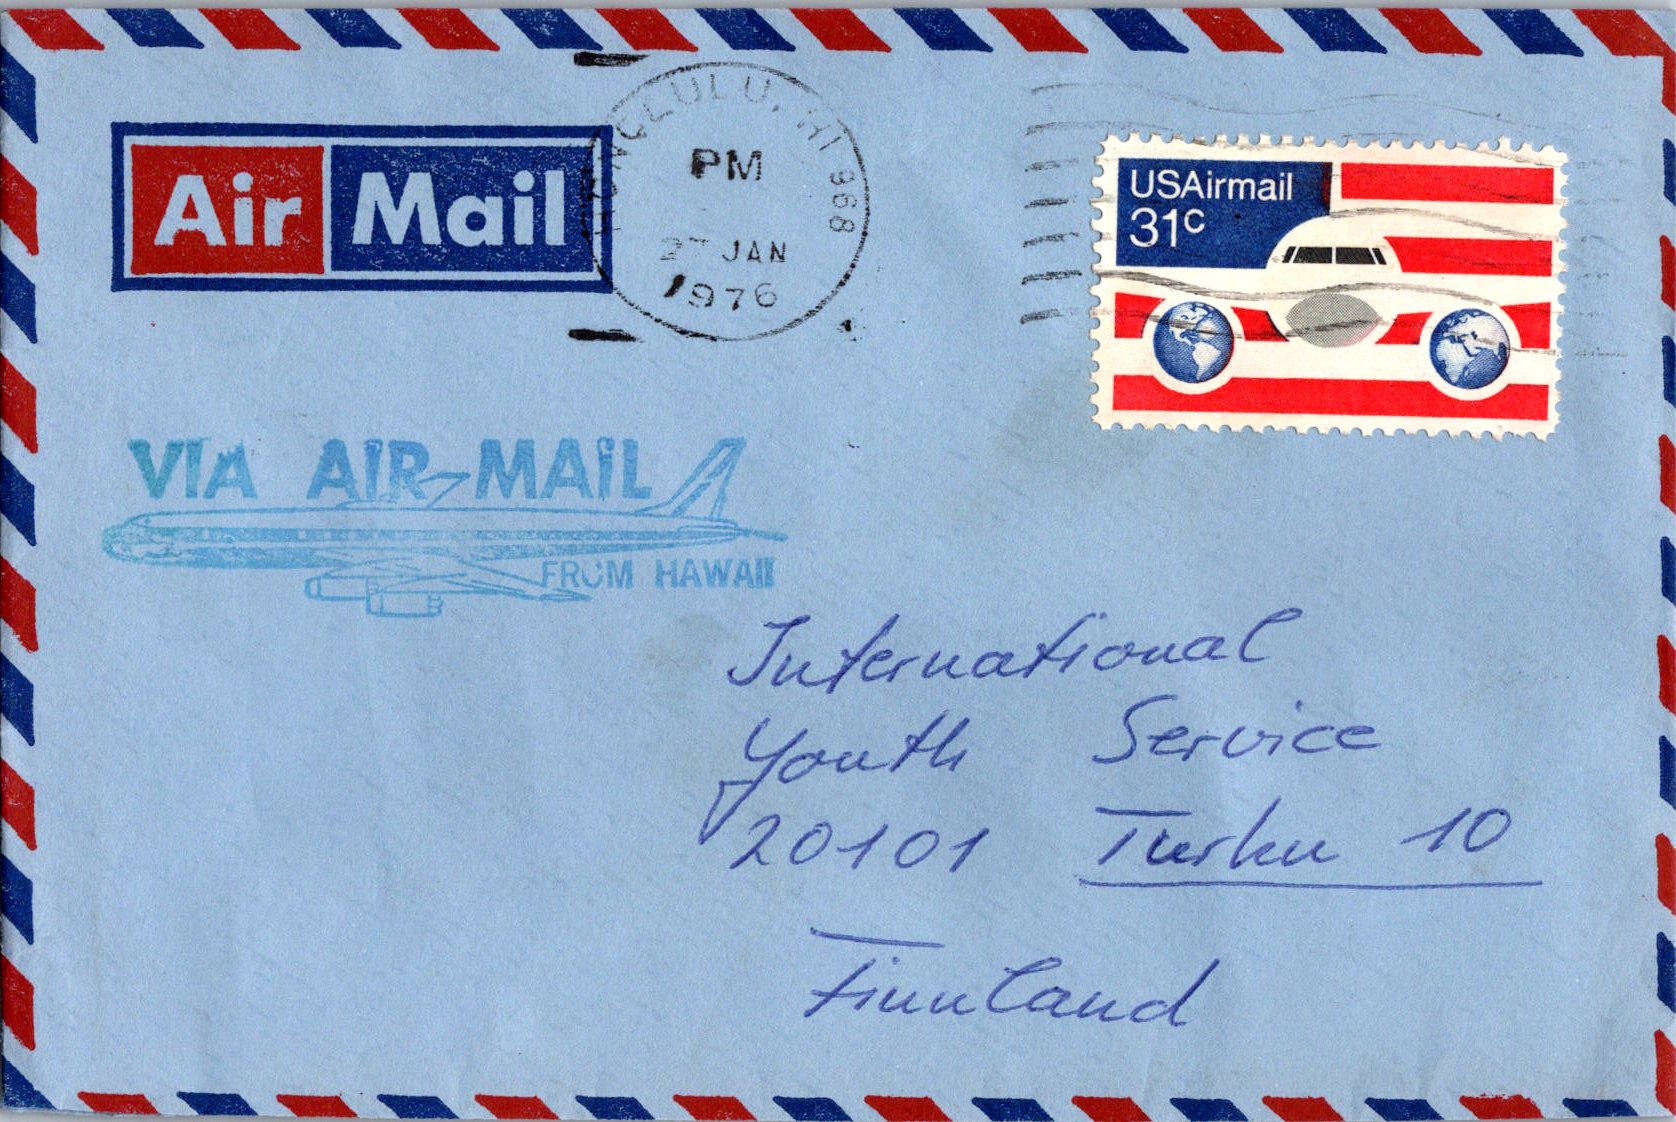 Air Mail
HONOLULU, HI 968
PM
27 JAN
1976
USAirmail
31c
VIA AIR-MAIL
FROM HAWAII
International
Youth Service
20101 Turku 10
Finnland